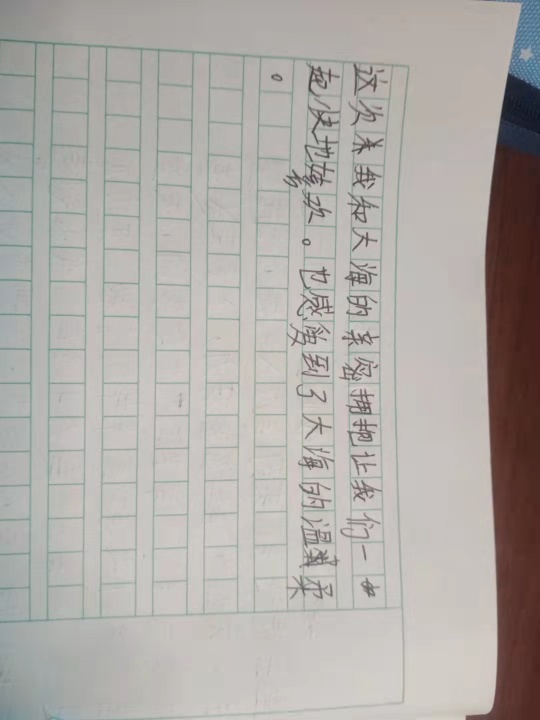 这次我和大海的亲密拥抱让我们一
起快地 欢。也感到了大海的温柔
。